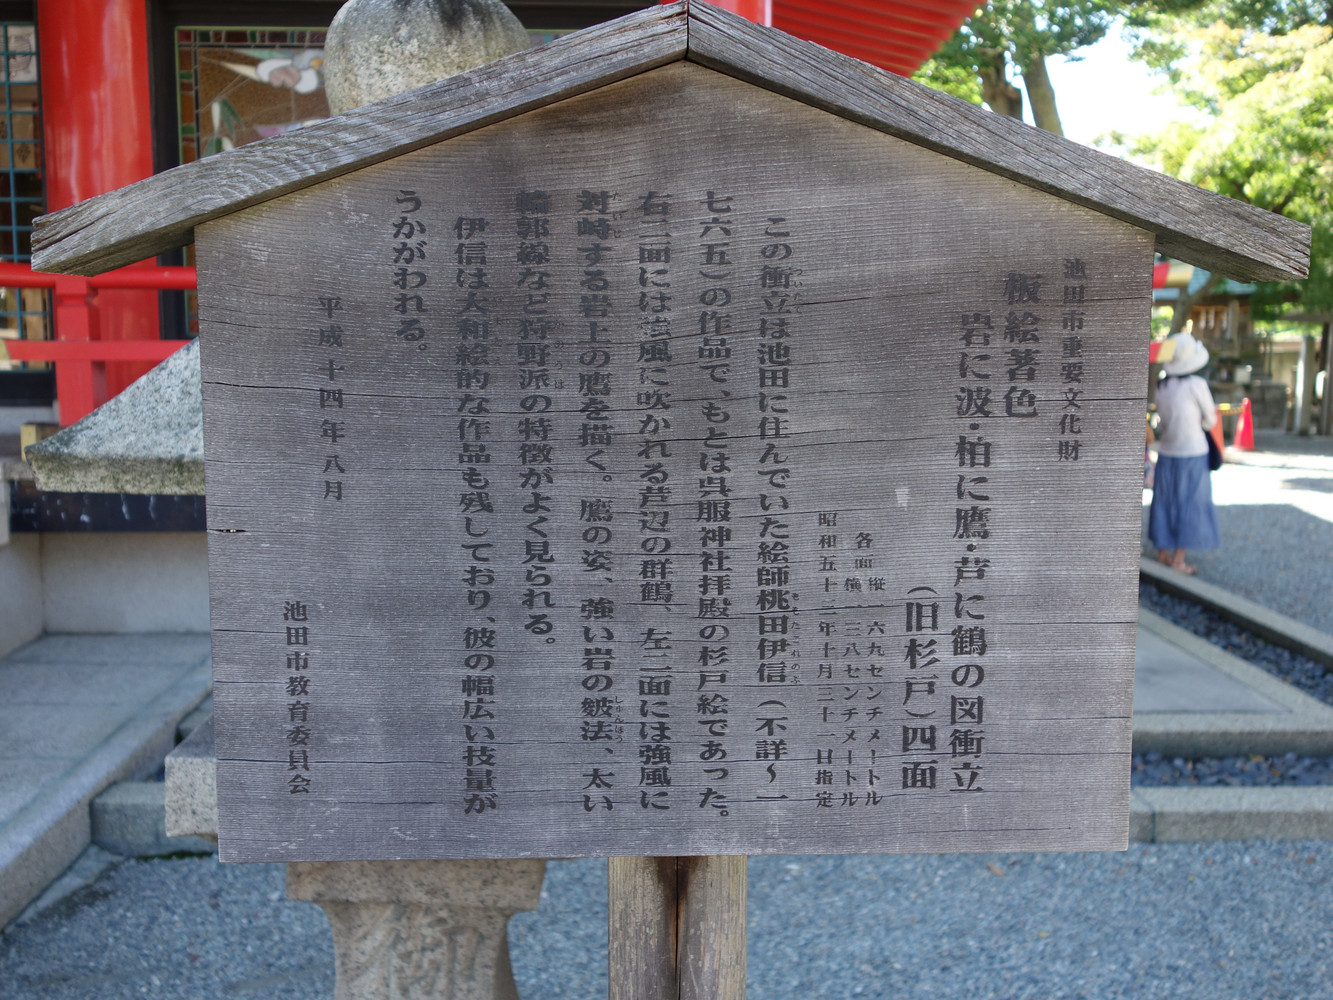 池田市重要文化財
板絵著色
岩に波・柏に鷹・芦に鶴の図衝立
(旧杉戸)四面
各面 縦一六九センチメートル
横一三八センチメートル
昭和五十三年十月三十一日指定
この衝立は池田に住んでいた絵師桃田伊信(不詳〜一
七六五)の作品で、もとは呉服神社拝殿の杉戸絵であった。
右二面には強風に吹かれる芦辺の群鶴、左二面には強風に
対峙する岩上の鷹を描く。鷹の姿、強い岩の皴法、太い
輪郭線など狩野派の特徴がよく見られる。
伊信は大和絵的な作品も残しており、彼の幅広い技量が
うかがわれる。
平成十四年八月
池田市教育委員会
御